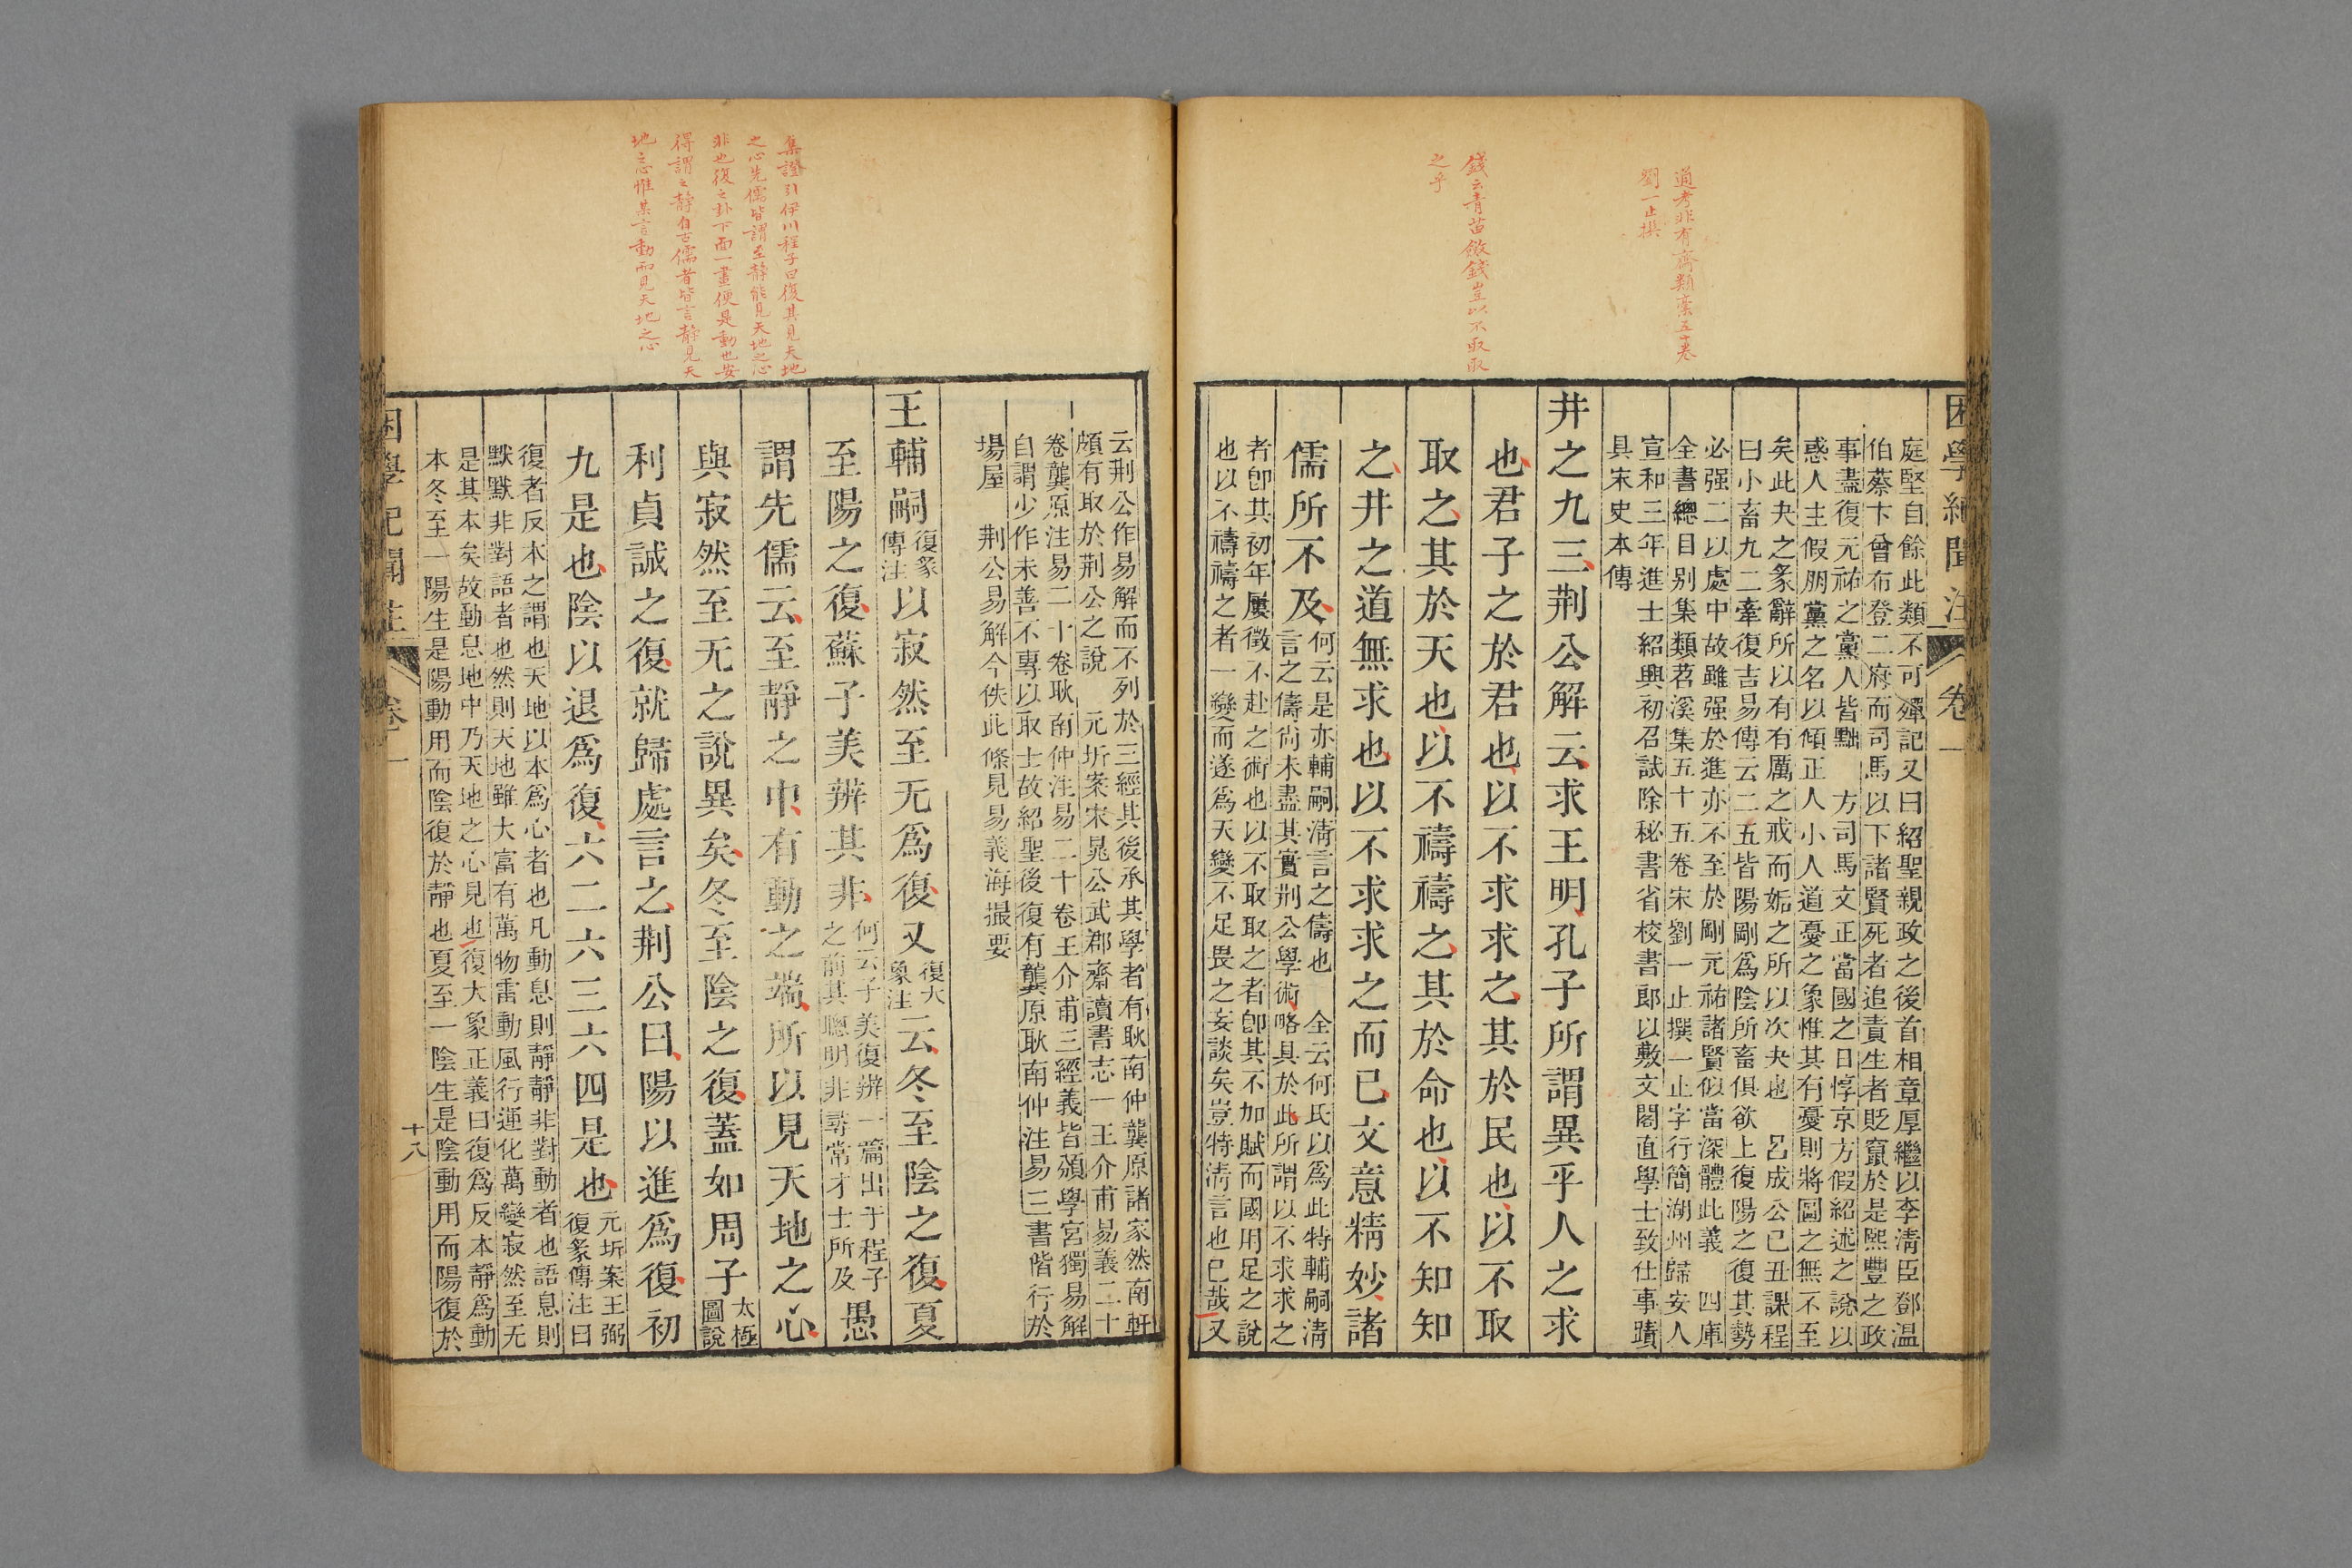 困學紀聞注 卷一
通考非有齋類稾五十卷
劉一止撰
錢云青苗斂錢豈以不取取
之乎
庭堅自餘此類不可殫記又曰紹聖親政之後首相章厚繼以李淸臣鄧温
伯蔡卞曾布登二府而司馬以下諸賢死者追責生者貶竄於是熙豐之政
事盡復元祐之黨人皆黜 方司馬文正當國之日惇京方假紹述之說以
惑人主假朋黨之名以傾正人小人道憂之象惟其有憂則將圖之無不至
矣此夬之彖辭所以有有厲之戒而姤之所以次夬也 呂成公己丑課程
曰小畜九二牽復吉易傳云二五皆陽剛爲陰所畜俱欲上復陽之復其勢
必强二以處中故雖强於進亦不至於剛元祐諸賢似當深體此義 四庫
全書總目别集類苕溪集五十五卷宋劉一止撰一止字行簡湖州歸安人
宣和三年進士紹興初召試除秘書省校書郎以敷文閣直學士致仕事蹟
具宋史本傳
井之九三荆公解云求王明孔子所謂異乎人之求
也君子之於君也以不求求之其於民也以不取
取之其於天也以不禱禱之其於命也以不知知
之井之道無求也以不求求之而已文意精妙諸
儒所不及
何云是亦輔嗣淸言之儔也 全云何氏以爲此特輔嗣淸
言之儔尙未盡其實荆公學術略具於此所謂以不求求之
者卽其初年屢徵不赴之術也以不取取之者卽其不加賦而國用足之說
也以不禱禱之者一變而遂爲天變不足畏之妄談矣豈特淸言也已哉又
集證引伊川程子曰復其見天地
之心先儒皆謂至靜能見天地之心
非也復之卦下面一畫便是動也安
得謂之靜自古儒者皆言靜見天
地之心惟某言動而見天地之心
云荆公作易解而不列於三經其後承其學者有耿南仲龔原諸家然南軒
頗有取於荆公之說 元圻案宋晁公武郡齋讀書志一王介甫易義二十
卷龔原注易二十卷耿南仲注易二十卷王介甫三經義皆頒學宮獨易解
自謂少作未善不專以取士故紹聖後復有龔原耿南仲注易三書偕行於
場屋 荆公易解今佚此條見易義海撮要
王輔嗣
復彖
傳注
以寂然至无爲復又
復大
象注
云冬至陰之復夏
至陽之復蘇子美辨其非
何云子美復辨一篇出于程子
之前其聰明非尋常才士所及
愚
謂先儒云至靜之中有動之端所以見天地之心
與寂然至无之說異矣冬至陰之復蓋如周子
太極
圖說
利貞誠之復就歸處言之荆公曰陽以進爲復初
九是也陰以退爲復六二六三六四是也
元圻案王弼
復彖傳注曰
復者反本之謂也天地以本爲心者也凡動息則靜靜非對動者也語息則
默默非對語者也然則天地雖大富有萬物雷動風行運化萬變寂然至无
是其本矣故動息地中乃天地之心見也復大象正義曰復爲反本靜爲動
本冬至一陽生是陽動用而陰復於靜也夏至一陰生是陰動用而陽復於
困學紀聞注 卷一 十八